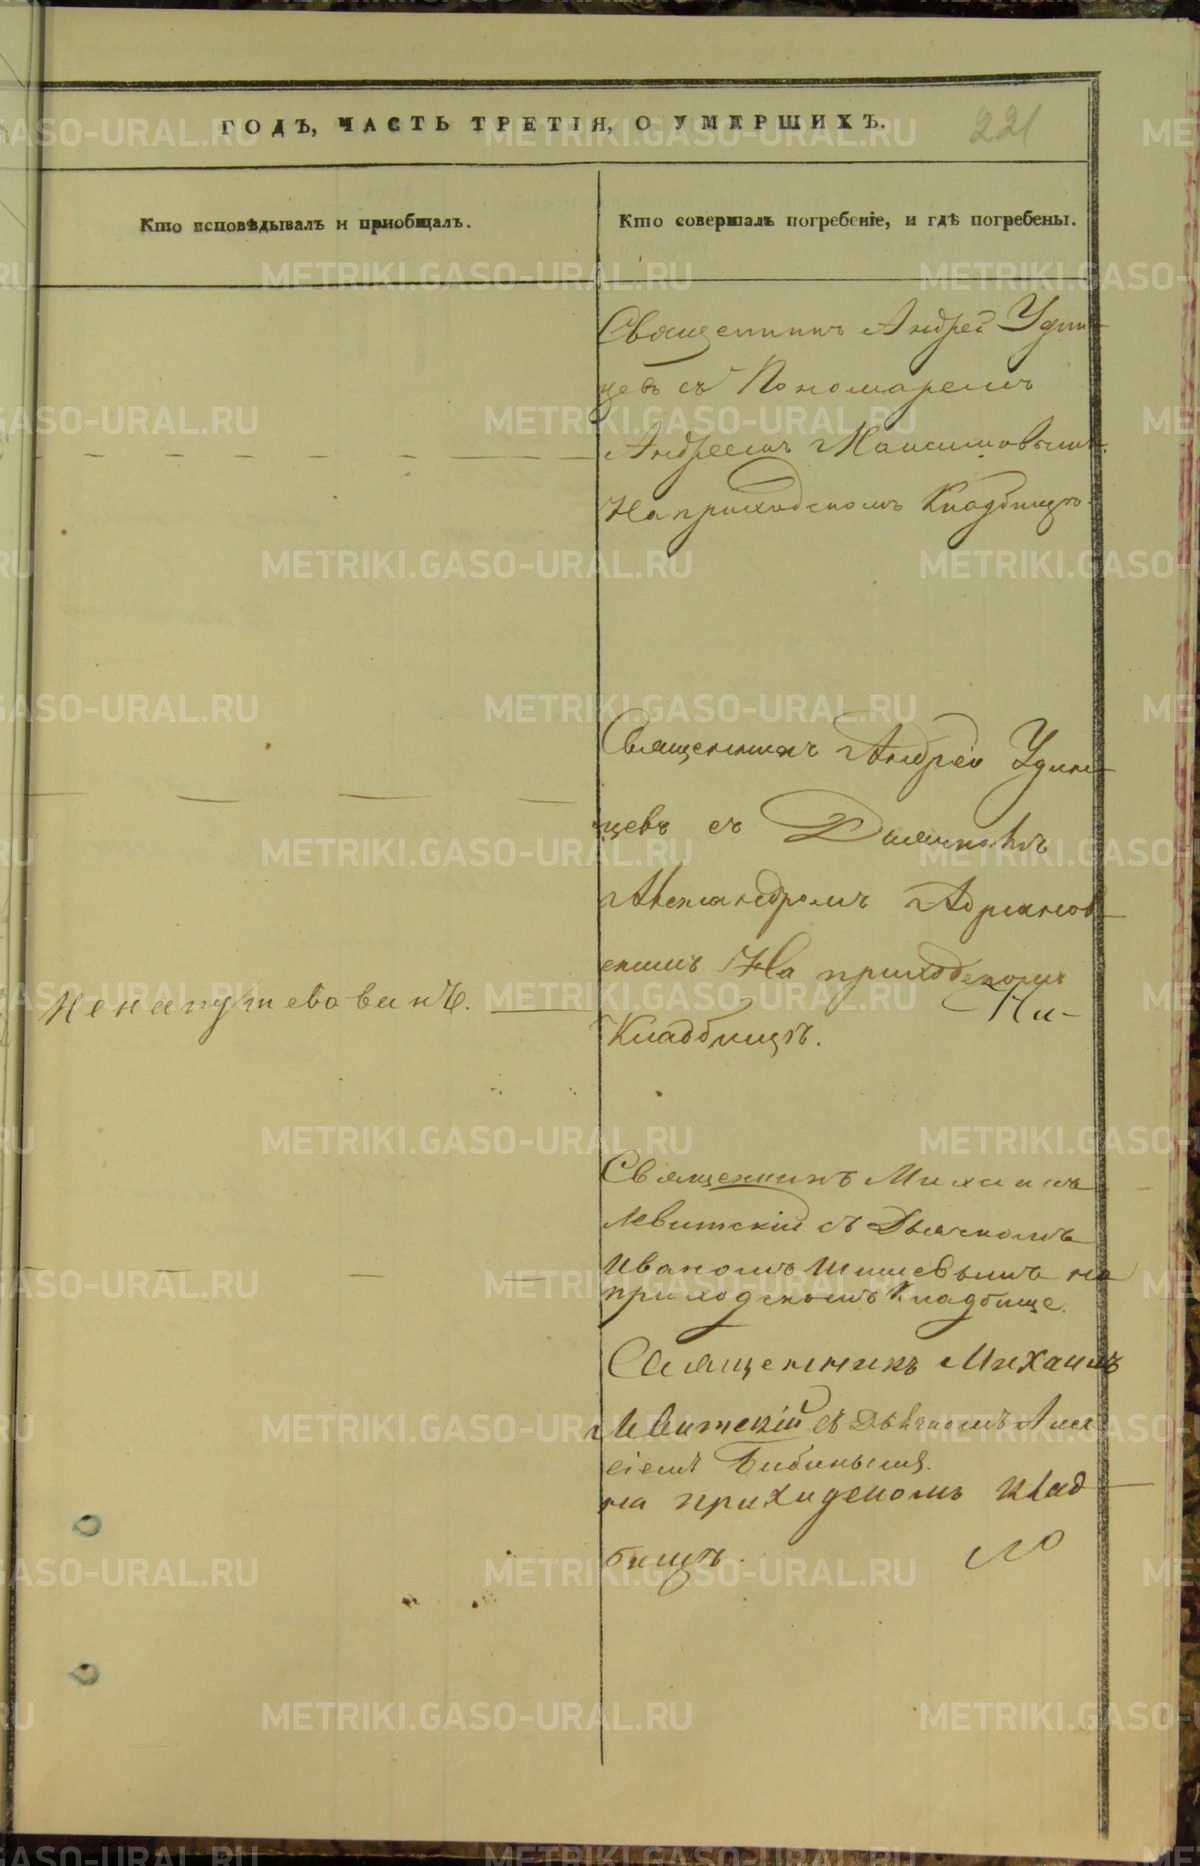 ГОДЪ, ЧАСТЬ ТРЕТІЯ, О УМЕРШИХЪ.
221
Кто исповѣдывалъ и приобщалъ.
Кто совершалъ погребеніе, и гдѣ погребены.
Священникъ Андрей Удин-
цевъ съ Пономаремъ
Андреемъ Максимовымъ.
На приходскомъ Кладбищѣ.
Священникъ Андрей Удин-
цевъ съ Дьячкомъ
Александромъ Адріанов-
скимъ На приходскомъ
Кладбищѣ.
Ненапутствованъ.
Ни-
Священникъ Михаилъ
Левитскій съ Дьячкомъ
Иваномъ Шишевымъ на
приходскомъ Кладбище.
Священникъ Михаилъ
Левитскій съ Дьячкомъ Алек
сіемъ Бибинымъ.
на приходскомъ клад
бищѣ.
ло
METRIKI.GASO-URAL.RU